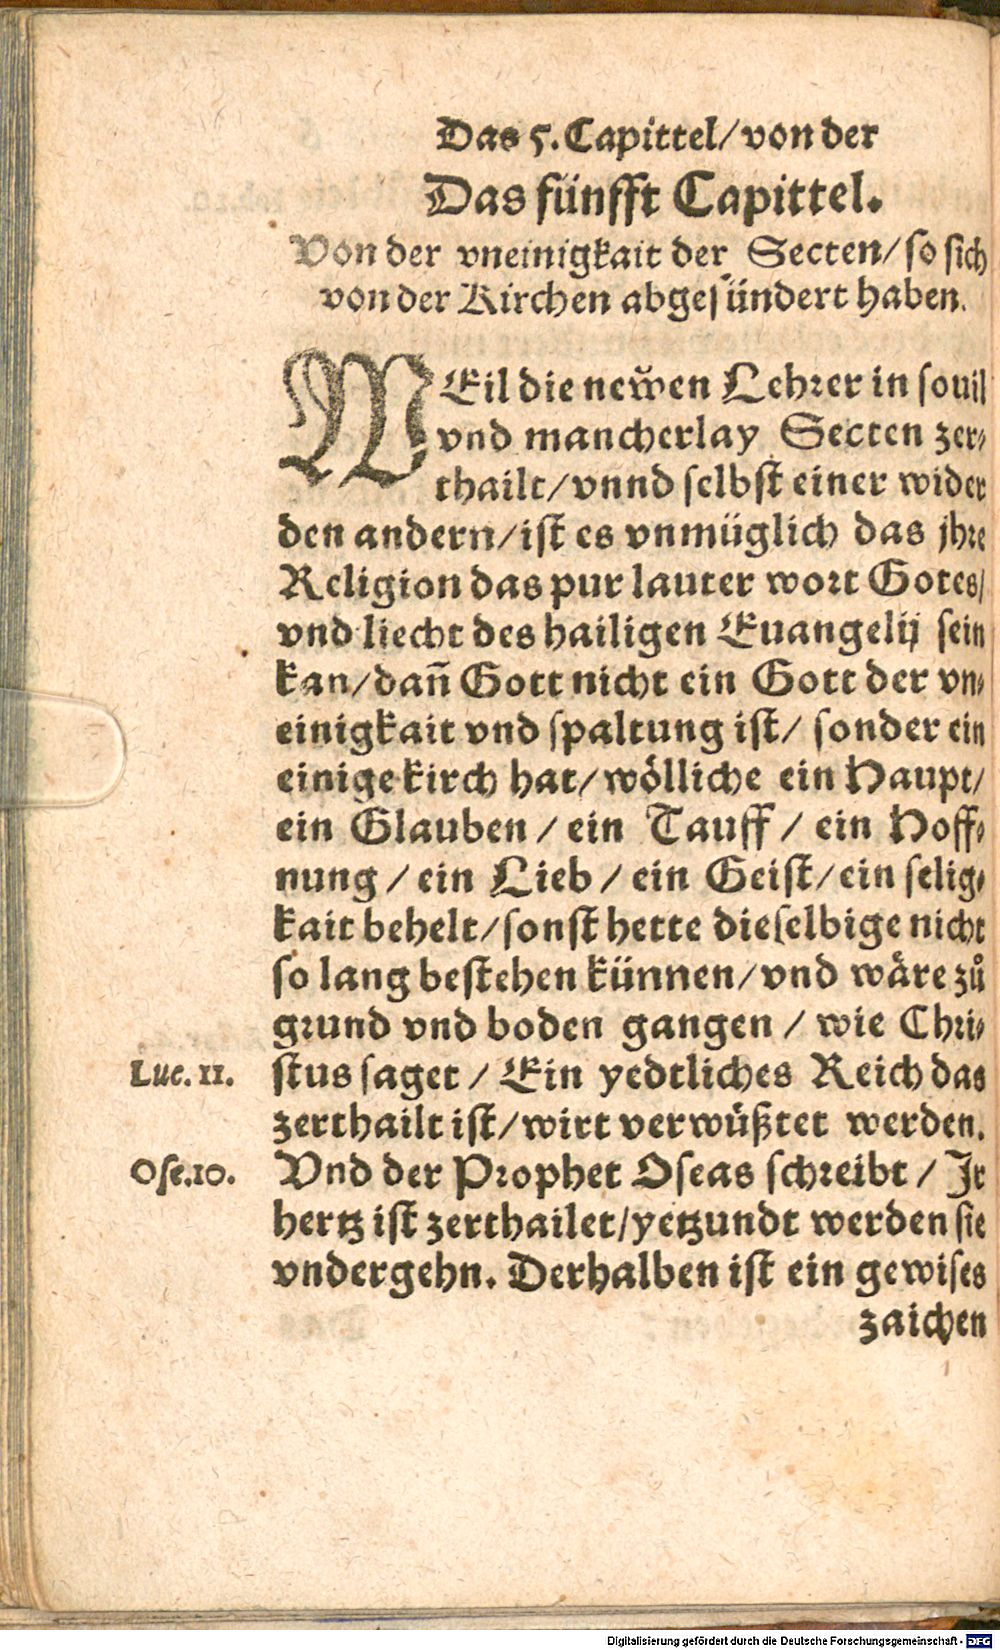 Das 5. Capittel/ von der
Das fünfft Capittel.
Von der vneinigkait der Secten/ so sich
von der Kirchen abgesündert haben.
WEil die newen Lehrer in souil
vnd mancherlay Secten zer⸗
thailt/ vnnd selbst einer wider
den andern/ ist es vnmüglich das jhre
Religion das pur lauter wort Gotes/
vnd liecht des hailigen Euangelij sein
kan/ dañ Gott nicht ein Gott der vn⸗
einigkait vnd spaltung ist/ sonder ein
einige kirch hat/ wölliche ein Haupt/
ein Glauben / ein Tauff / ein Hoff⸗
nung / ein Lieb / ein Geist/ ein selig⸗
kait behelt/ sonst hette dieselbige nicht
so lang bestehen künnen/ vnd wäre zů
grund vnd boden gangen / wie Chri⸗
Luc. 11. stus saget / Ein yedtliches Reich das
zerthailt ist/ wirt verwüßtet werden.
Ose. 10. Vnd der Prophet Oseas schreibt / Ir
hertz ist zerthailet/ yetzundt werden sie
vndergehn. Derhalben ist ein gewises
zaichen
Digitalisierung gefördert durch die Deutsche Forschungsgemeinschaft - DFG